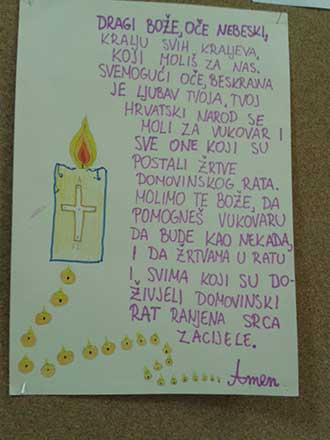 DRAGI BOŽE, OČE NEBESKI,
KRALJU SVIH KRALJEVA,
KOJI MOLIŠ ZA NAS.
SVEMOGUĆI OČE, BESKRAJNA
JE LJUBAV TVOJA. TVOJ
HRVATSKI NAROD SE
MOLI ZA VUKOVAR I
SVE ONE KOJI SU
POSTALI ŽRTVE
DOMOVINSKOG RATA.
MOLIMO TE BOŽE, DA
POMOGNEŠ VUKOVARU
DA BUDE KAO NEKADA,
I DA ŽRTVAMA U RATU
I, SVIMA KOJI SU DO-
ŽIVJELI DOMOVINSKI
RAT RANJENA SRCA
ZACIJELE.
Amen